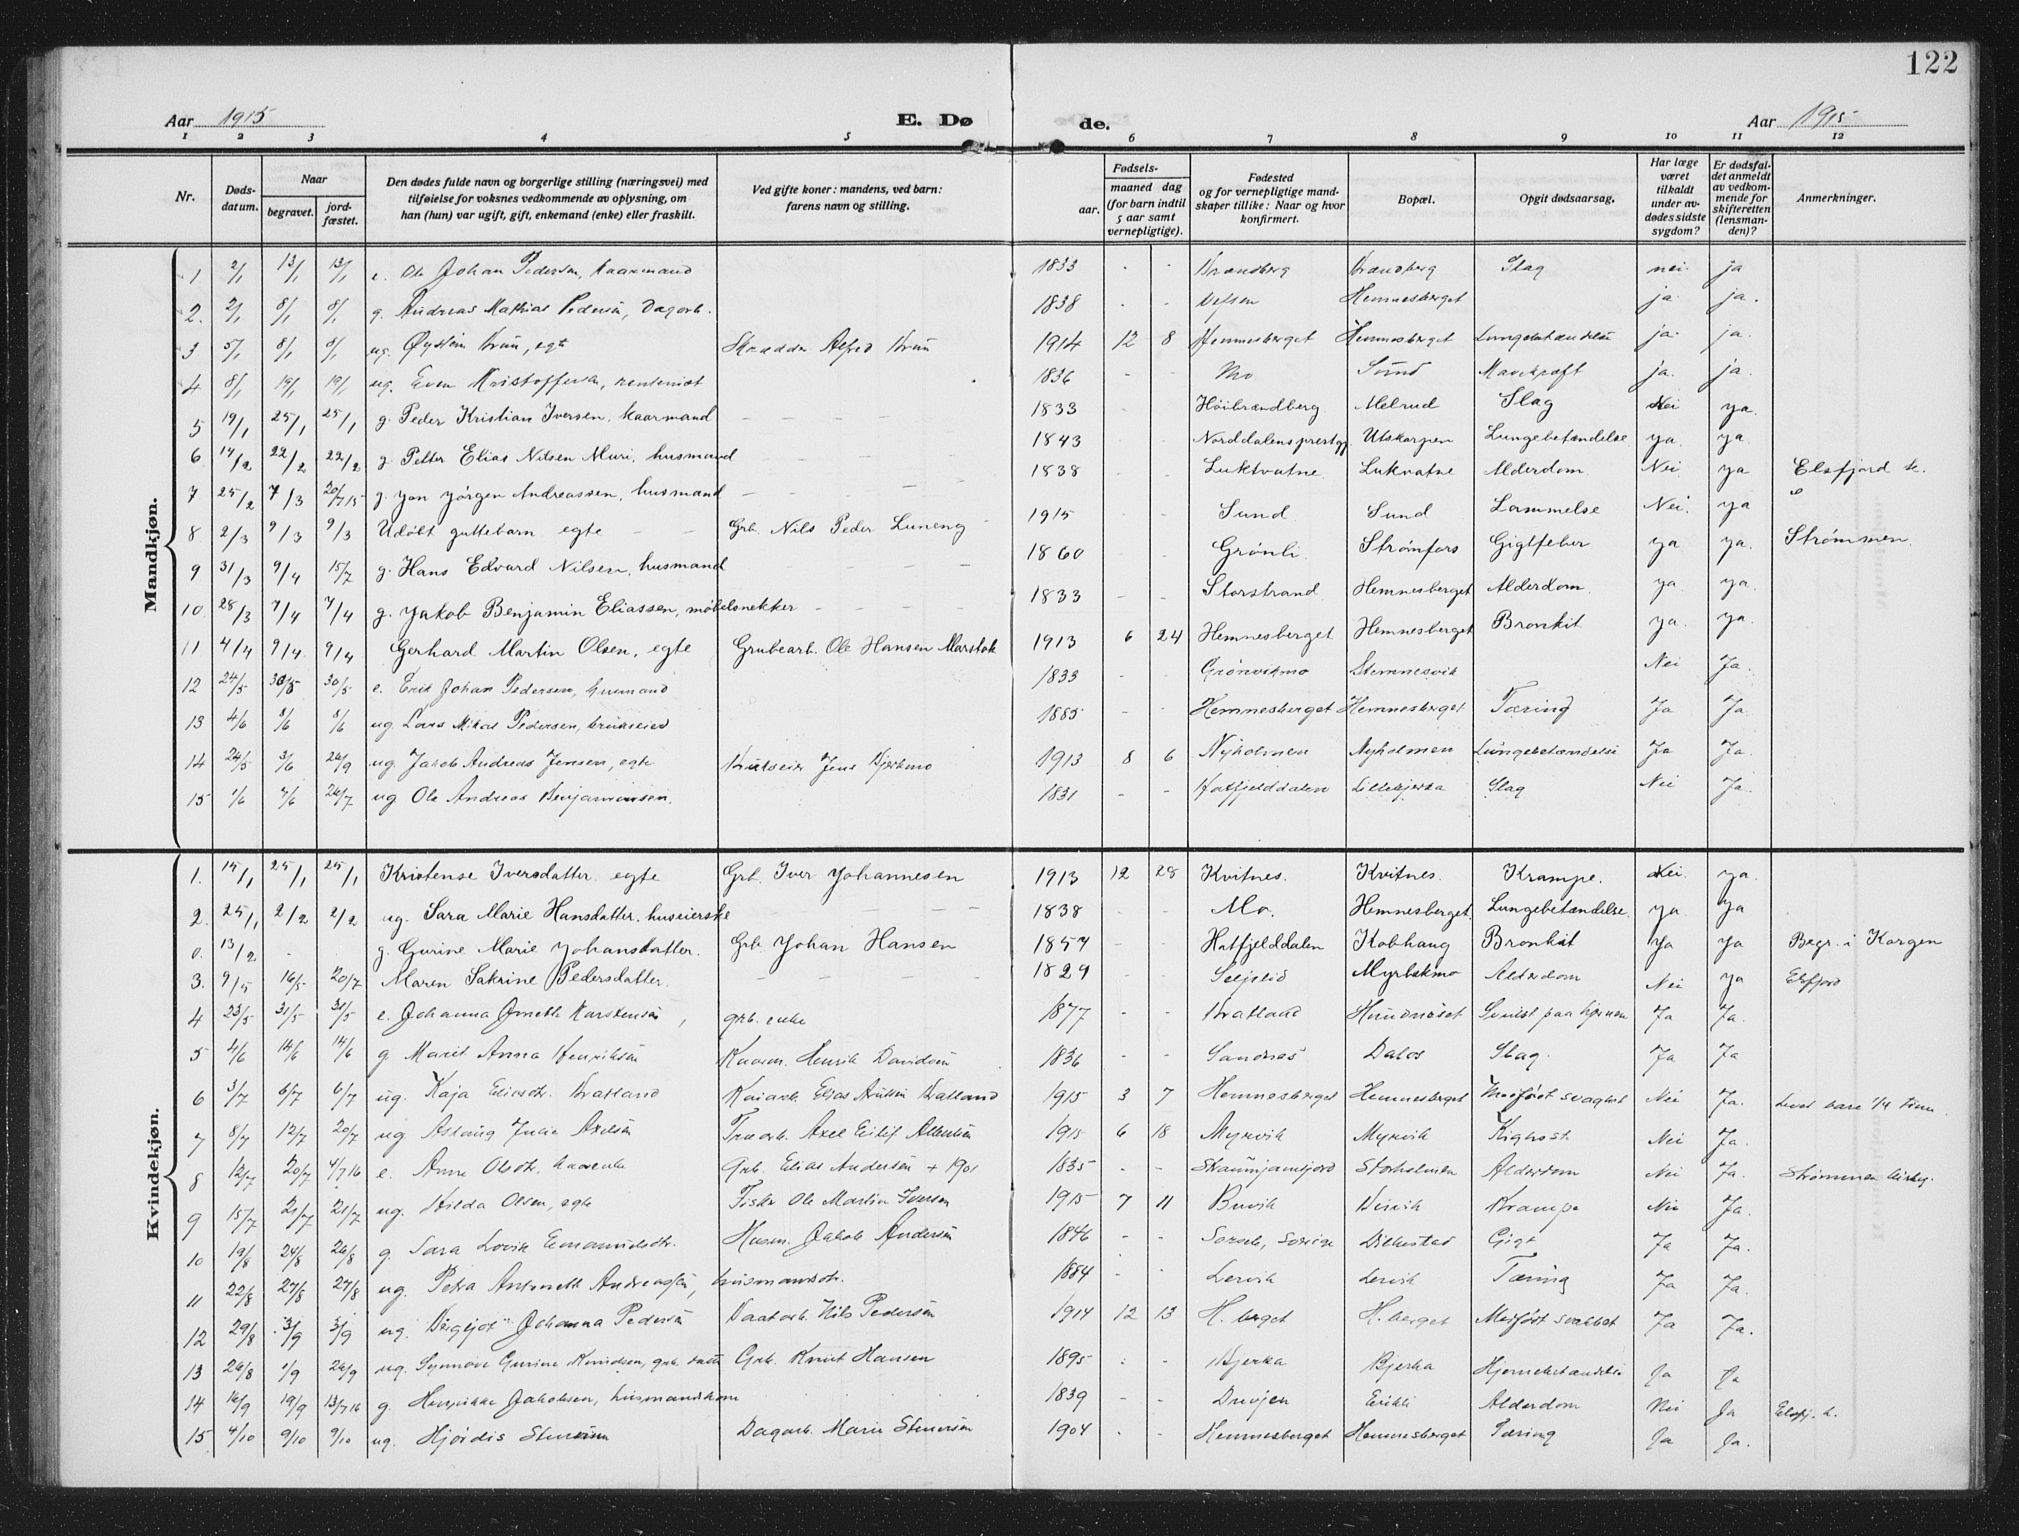 122
Aar 1915 E. Dø de. Aar 1915
1 2 3 4 5 6 7 8 9 10 11 12
Nr. Døds-datum. Naar begravet. jord-fæstet. Den dødes fulde navn og borgerlige stilling (næringsvei) med tilføielse for voksnes vedkommende av oplysning, om han (hun) var ugift, gift, enkemand (enke) eller fraskilt. Ved gifte koner: mandens, ved barn: farens navn og stilling. Fødsels- aar. maaned dag (for barn indtil 5 aar samt vernepligtige). Fødested og for vernepligtige mandskaper tillike: Naar og hvor konfirmert. Bopæl. Opgit dødsaarsag. Har læge været tilkaldt under avdødes sidste sygdom? Er dødsfaldet anmeldt av vedkommende for skifteretten (lensmanden)? Anmerkninger.
Mandkjøn.
1 2/1 13/1 13/1 e. Ole Johan Pedersen, kaarmand 1833 - - Brændberg Brændberg Slag nei ja
2. 2/1 8/1 8/1 g. Andreas Mathias Pedersen, Dagarb. 1838 - - Vefsen Hemnesberget ja ja.
3 5/1 8/1 8/1 ug. Øystein Bruu, egte Skrædder Alfred Bruu 1914 12 8 Hemnesberget Hemnesberget Lungebetændelse ja. ja.
4 8/1 19/1 19/1 ug. Even Kristoffersen, rentenist 1836 Mo Sund Mavekræft ja. ja.
5 19/1 25/1 25/1 g. Peder Kristian Iversen, kaarmand 1833 Høibrændberg Melrud Slag Nei ya.
6 14/2 22/2 22/2 g. Petter Elias Nilsen Muri, husmand 1843 Norddalens prestgj. Utskarpen Lungebetændelse ya. ya.
7 25/2 7/3 20/7 15 g. Jon Jørgen Andreassen, husmand 1838 Luktvatne Lukvatne Alderdom. Nei ya Elsfjord k.
8 2/3 9/3 9/3 Udøbt guttebarn egte Grb. Nils Peder Luneng 1915 Sund Sund Lammelse Nei. ya
9 31/3 9/4 15/7 g. Hans Edvard Nilsen, husmand 1860 Grønli Strømfors Gigtfeber ya ya. Strømmen.
10 28/3 7/4 7/4 g. Jakob Benjamin Eliassen, møbelsnekker 1833 - - Storstrand Hemnesberget Alderdom. ya. ya.
11 4/4 9/4 9/4 Gerhard Martin Olsen, egte Grubearb. Ole Hansen Marstok 1913 6 24 Hemnesberget Hemnesberget Bronkit ya. ya.
12 24/5 30/5 30/5 e. Erik Johan Pedersen, husmand 1833 Grønvikmo Stemnesvik Nei Ja.
13 4/6 8/6 8/6 ug Lars Mikal Pedersen, brukseier 1885 - - Hemnesberget Hemnesberget Tæring Ja Ja.
14 24/5 3/6 26/9 ug. Jakob Andreas Jensen, egte Brukseier Jens Bjerkmo 1913 8 6 Nyholmen Nyholmen Lungebetændelse Ja Ja.
15 1/6 7/6 26/7 ug Ole Andreas Benjaminsen. 1831 - - Hatfjelddalen Lillebjerka Slag Nei Ja.
Kvindekjøn.
1. 14/1 25/1 25/1 Kristense Iversdatter. egte Grb. Iver Johannesen 1913 12 28 Kvitnes. Kvitnes. Krampe. Nei. ya.
2. 25/1 2/2 2/2 ug. Sara Marie Hansdatter. huseierske 1838 - - Mo. Hemnesberget. Lungebetændelse. ya ya
0. 13/2 - g. Gurine Marie Johansdatter. Grb. Johan Hansen 1857 - - Hatfjelddalen Kobhaug Bronkit ya ya Begr. i Korgen
3. 9/5 16/5 20/7 Maren Sakrine Pedersdatter. 1829 - - Seljelid Myrbekmo Alderdom Nei ya Elsfjord
4 23/5 31/5 31/5 e. Johanna Karstensen, grb. enke 1877 - - Bratland Hundneset Svulst paa hjernen Ja Ja.
5 4/6 14/6 14/6 g Marit Anna Henriksen Kaarm. Henrik Davidsen 1836 - - Sandnes Dalos Slag. Ja Ja
6 3/7 6/7 6/7 ug. Kaja Eliasdtr. Bratland Kaiarb. Elias Bratland 1915 3 7 Hemnesberget Hemnesberget Medfødt svaghet Nei Ja. Levet bare 1/4 time
7 8/7 12/7 20/7 ug. Aslaug Julie Axelsen Axel Eilif Albertsen 1915 6 18 Myrvik Myrvik Kighost Nei Ja.
8 12/7 20/7 4/7 16 e. Anne Olsdtr. kaarenke Grb. Elias Andersen + 1901 1835 - - Storholmen Alderdom Nei Ja. Strømmen kirkeg.
9 15/7 21/7 21/7 ug. Hilda Olsen, egte Fisker Ole Martin Iversen 1915 7 11 Buvik Buvik Krampe Nei Ja.
10 19/8 24/8 26/8 g. Sara Lovik Emanuelsdtr. Husm. Jakob Andersen 1846 - - Sorsele, Sverige Dilkestad Gigt Ja Ja.
11 22/8 27/8 27/8 ug. Petra Antonette Andreassen, husmandsdtr. 1884 - - Lervik Lervik Tæring Ja Ja.
12 29/8 3/9 3/9 ug. Bergljot Johanna Pedersen Baatarb. Nils Pedersen 1914 12 13 H. berget H. berget Medfødt svakhet Ja Ja.
13 26/8 1/9 26/9 ug. Synnøve Gurine Knudsen, grb. datter Grb. Knut Hansen 1895 - - Bjerka Bjerka Hjernebetændelse Ja Ja
14 16/9 19/9 13/7 16 g. Henrikke Jakobsen, husmandskone 1839 - - Alderdom Nei Ja Elsfj. k.
15 4/10 9/10 9/10 ug. Hjørdis Stensen Dagarb. Marie Stensen 1904 - - Hemnesberget Hemnesberget Tæring Ja Ja.